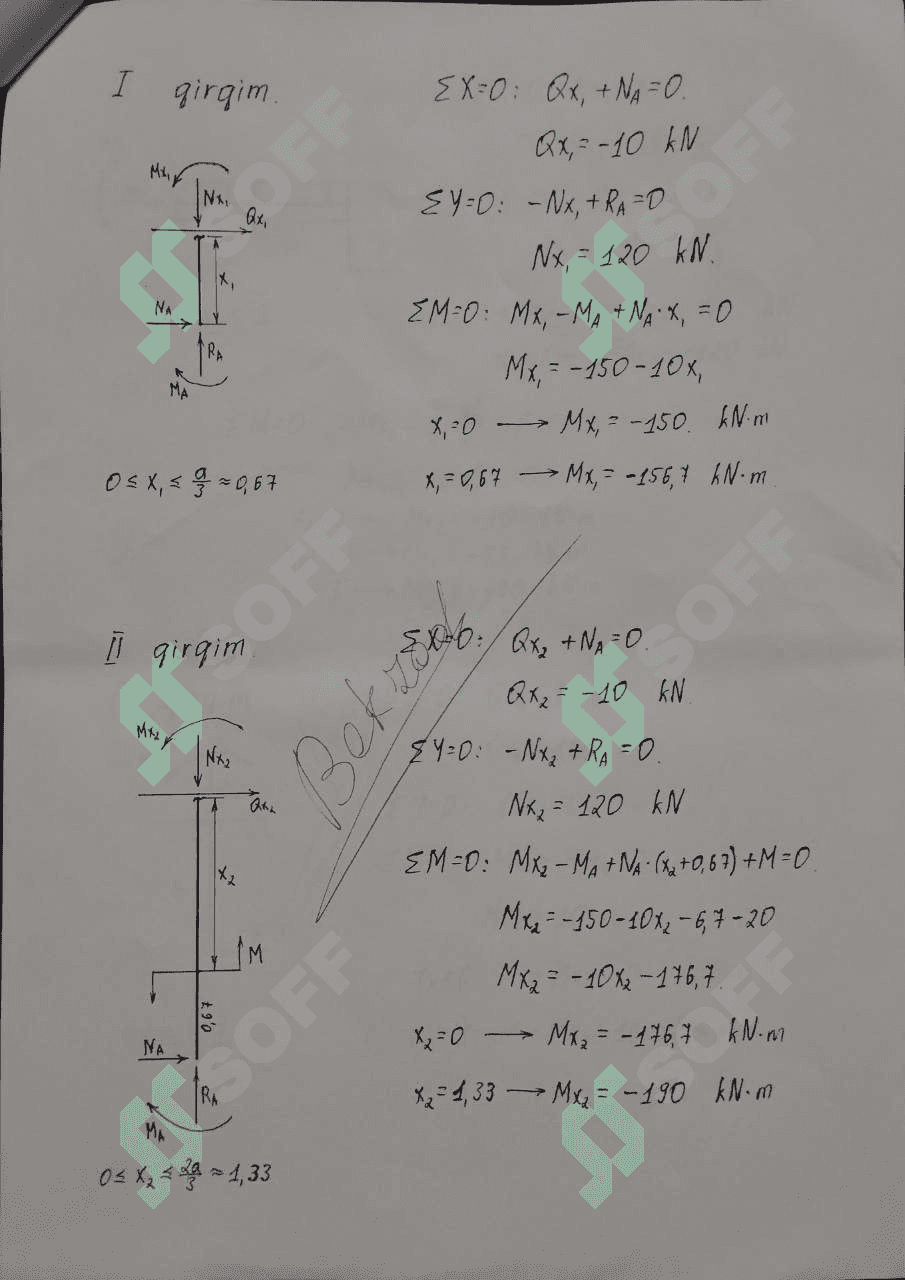 I qirqim.
Mx₁
Nx₁
Qx₁
x₁
NA
RA
MA
0 ≤ x₁ ≤ a/3 ≈ 0,67
ΣX=0: Qx₁ + NA = 0.
Qx₁ = -10 kN
ΣY=0: -Nx₁ + RA = 0
Nx₁ = 120 kN.
ΣM=0: Mx₁ - MA + NA·x₁ = 0
Mx₁ = -150 - 10x₁
x₁=0 → Mx₁ = -150. kN·m
x₁=0,67 → Mx₁ = -156,7 kN·m
II qirqim.
Mx₂
Nx₂
Qx₂
x₂
M
0,67
NA
RA
MA
0 ≤ x₂ ≤ 2a/3 ≈ 1,33
ΣX=0: Qx₂ + NA = 0.
Qx₂ = -10 kN
ΣY=0: -Nx₂ + RA = 0.
Nx₂ = 120 kN
ΣM=0: Mx₂ - MA + NA·(x₂+0,67) + M = 0.
Mx₂ = -150-10x₂-6,7-20
Mx₂ = -10x₂ - 176,7.
x₂=0 → Mx₂ = -176,7 kN·m
x₂=1,33 → Mx₂ = -190 kN·m
SOFF
SOFF
SOFF
SOFF
SOFF
SOFF